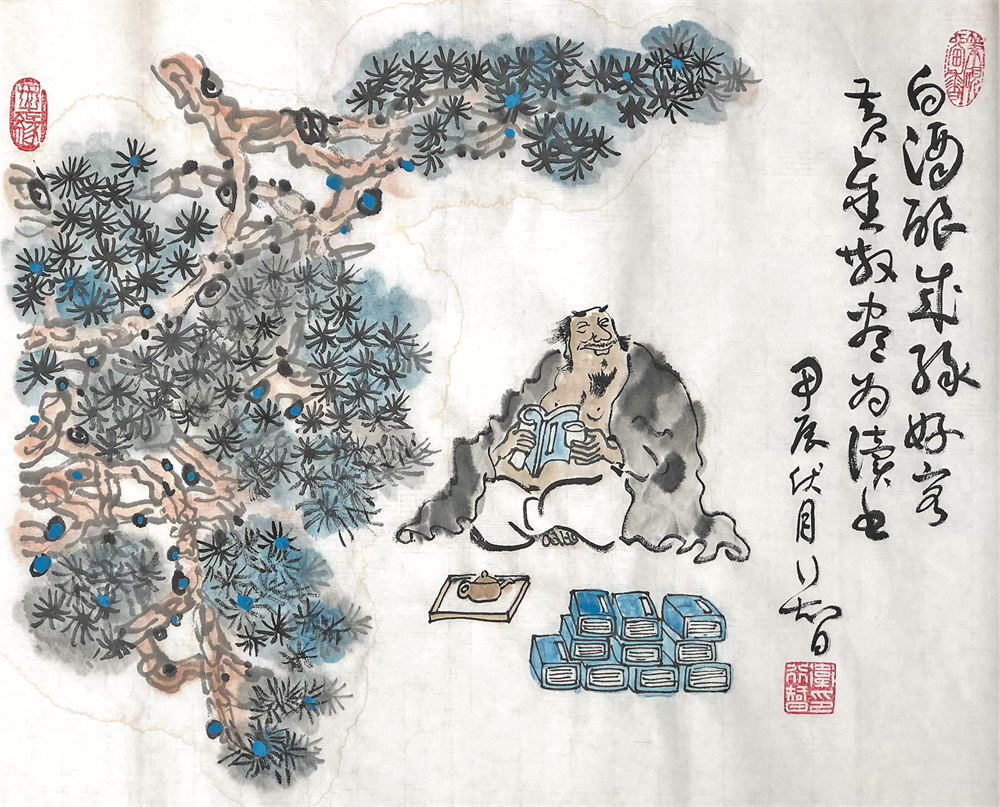 白酒酿成缘好客
黄金散尽为读书
甲辰伏月行智